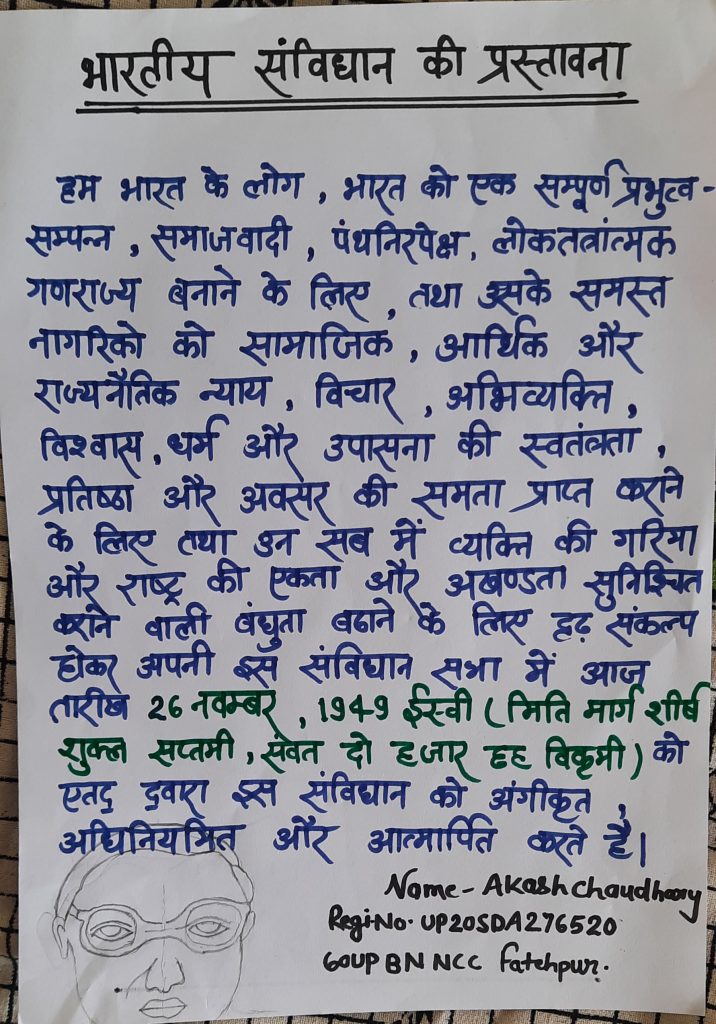 भारतीय संविधान की प्रस्तावना
हम भारत के लोग , भारत को एक सम्पूर्ण प्रभुत्व-
सम्पन्न , समाजवादी , पंथनिरपेक्ष, लोकतत्रांत्मक
गणराज्य बनाने के लिए , तथा उसके समस्त
नागरिको को सामाजिक , आर्थिक और
राज्यनैतिक न्याय , विचार , अभिव्यक्ति ,
विश्वास , धर्म और उपासना की स्वतंत्रता ,
प्रतिष्ठा और अवसर की समता प्राप्त कराने
के लिए तथा उन सब में व्यक्ति की गरिमा
और राष्ट्र की एकता और अखण्डता सुनिश्चित
कराने वाली बंधुता बढाने के लिए दृढ़ संकल्प
होकर अपनी इस संविधान सभा में आज
तारीख 26 नवम्बर , 1949 ईस्वी ( मिति मार्ग शीर्ष
शुक्ल सप्तमी , संवत दो हजार छह विक्रमी ) को
एतद् द्वारा इस संविधान को अंगीकृत ,
अधिनियमित और आत्मार्पित करते है।
Name - Akash chaudheary
Regi·No. UP20SDA276520
60UP BN NCC Fatehpur.